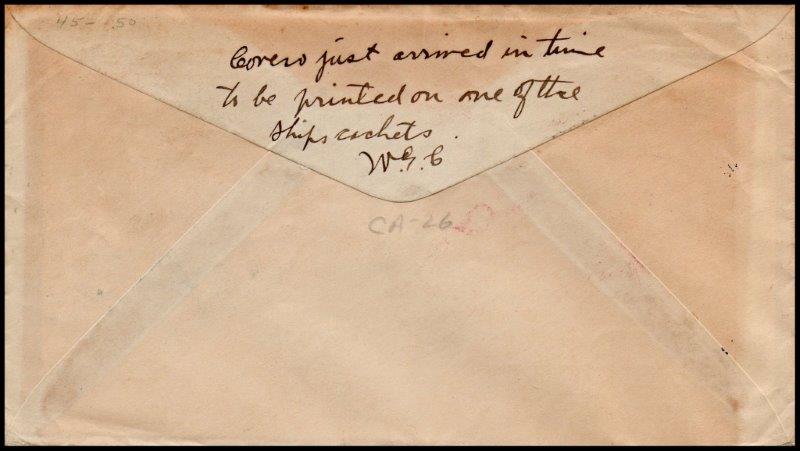 45- .50
Covers just arrived in time
to be printed on one of the
ships cachets.
W.G.C
CA-26